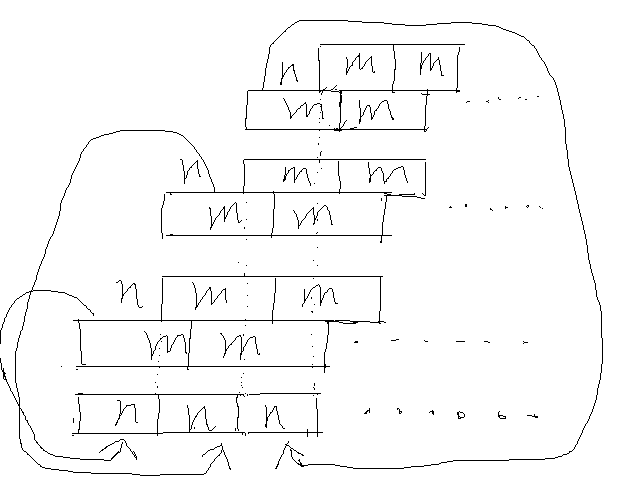 n m m
m m ......
n m m
m m ......
n m m
m m ......
n n n ......